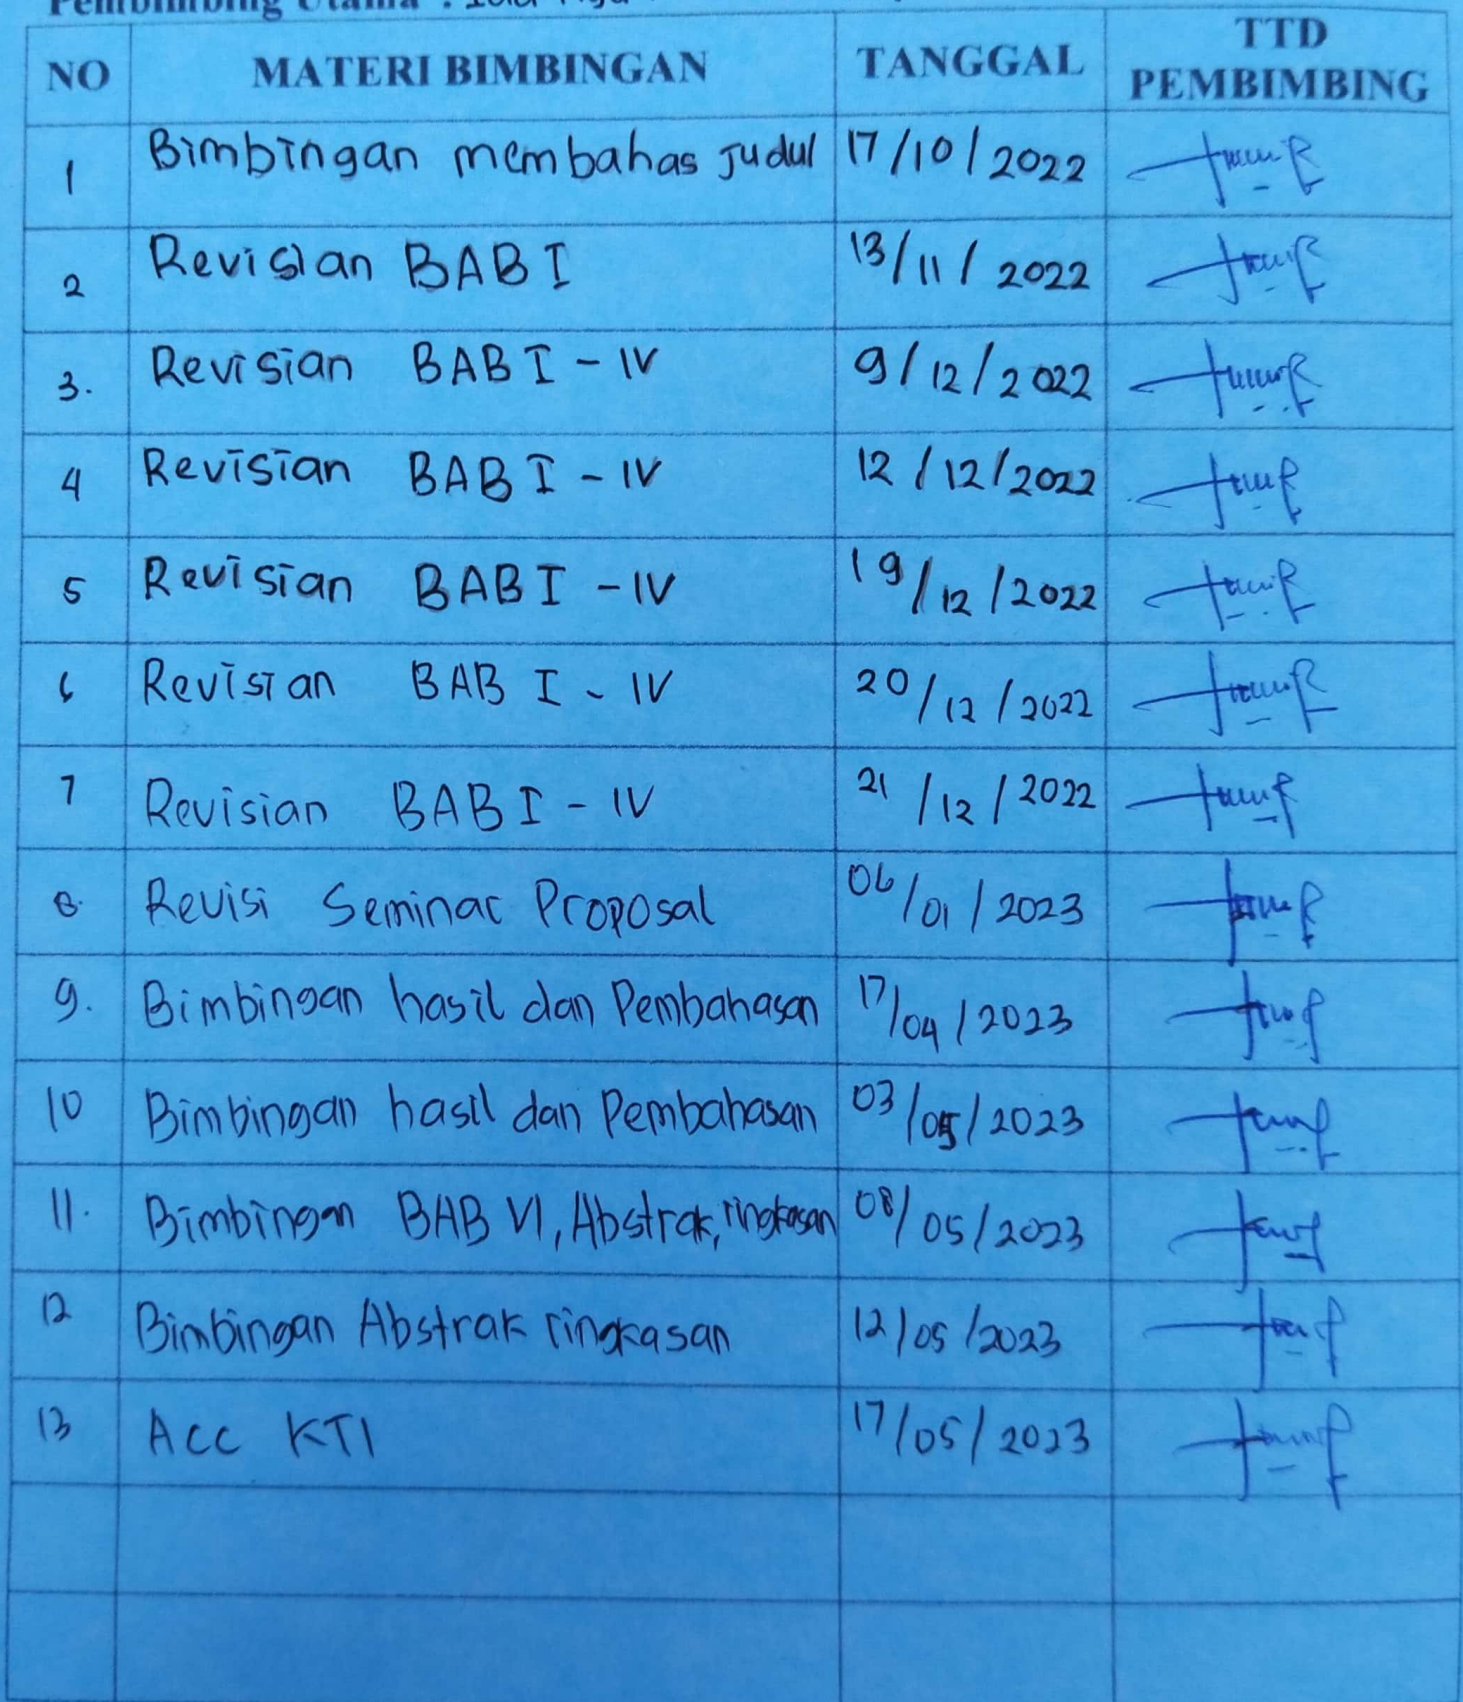 Pembimbing Utama :
NO MATERI BIMBINGAN TANGGAL TTD PEMBIMBING
1 Bimbingan membahas Judul 17/10/2022
2 Revisian BAB I 13/11/2022
3. Revisian BAB I - IV 9/12/2022
4 Revisian BAB I - IV 12/12/2022
5 Revisian BAB I - IV 19/12/2022
6 Revisian BAB I - IV 20/12/2022
7 Revisian BAB I - IV 21/12/2022
8. Revisi Seminar Proposal 06/01/2023
9. Bimbingan hasil dan Pembahasan 17/04/2023
10 Bimbingan hasil dan Pembahasan 03/05/2023
11. Bimbingan BAB VI, Abstrak, ringkasan 08/05/2023
12 Bimbingan Abstrak ringkasan 12/05/2023
13 Acc KTI 17/05/2023